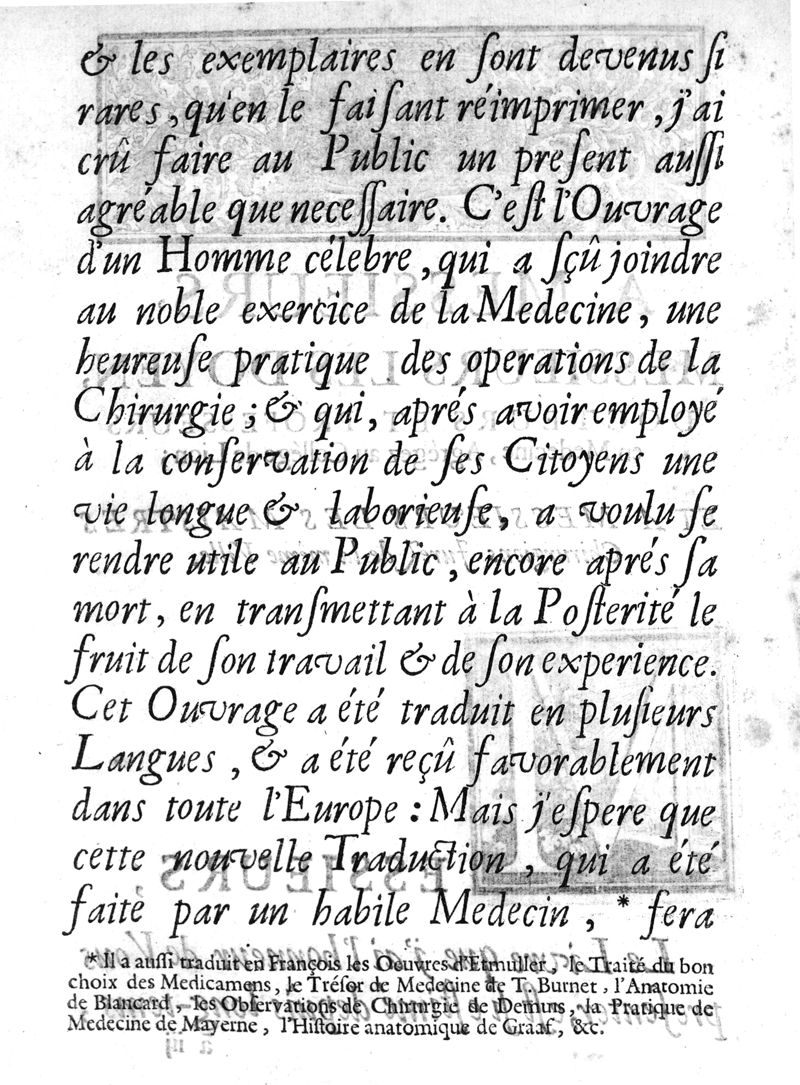 & les exemplaires en ſont devenus ſi
rares, qu'en le faiſant réimprimer, j'ai
crû faire au Public un preſent auſſi
agréable que neceſſaire. C'eſt l'Ouvrage
d'un Homme célébre, qui a ſçû joindre
au noble exercice de la Medecine, une
heureuſe pratique des operations de la
Chirurgie; & qui, aprés avoir employé
à la conſervation de ſes Citoyens une
vie longue & laborieuſe, a voulu ſe
rendre utile au Public, encore aprés ſa
mort, en tranſmettant à la Poſterité le
fruit de ſon travail & de ſon experience.
Cet Ouvrage a été traduit en pluſieurs
Langues, & a été reçû favorablement
dans toute l'Europe : Mais j'eſpere que
cette nouvelle Traduction, qui a été
faite par un habile Medecin, * ſera
* Il a auſſi traduit en François les Oeuvres d'Etmuller, le Traité du bon
choix des Medicamens, le Tréſor de Medecine de T. Burnet, l'Anatomie
de Blancard, les Obſervations de Chirurgie de Demuis, la Pratique de
Medecine de Mayerne, l'Hiſtoire anatomique de Graaf, &c.